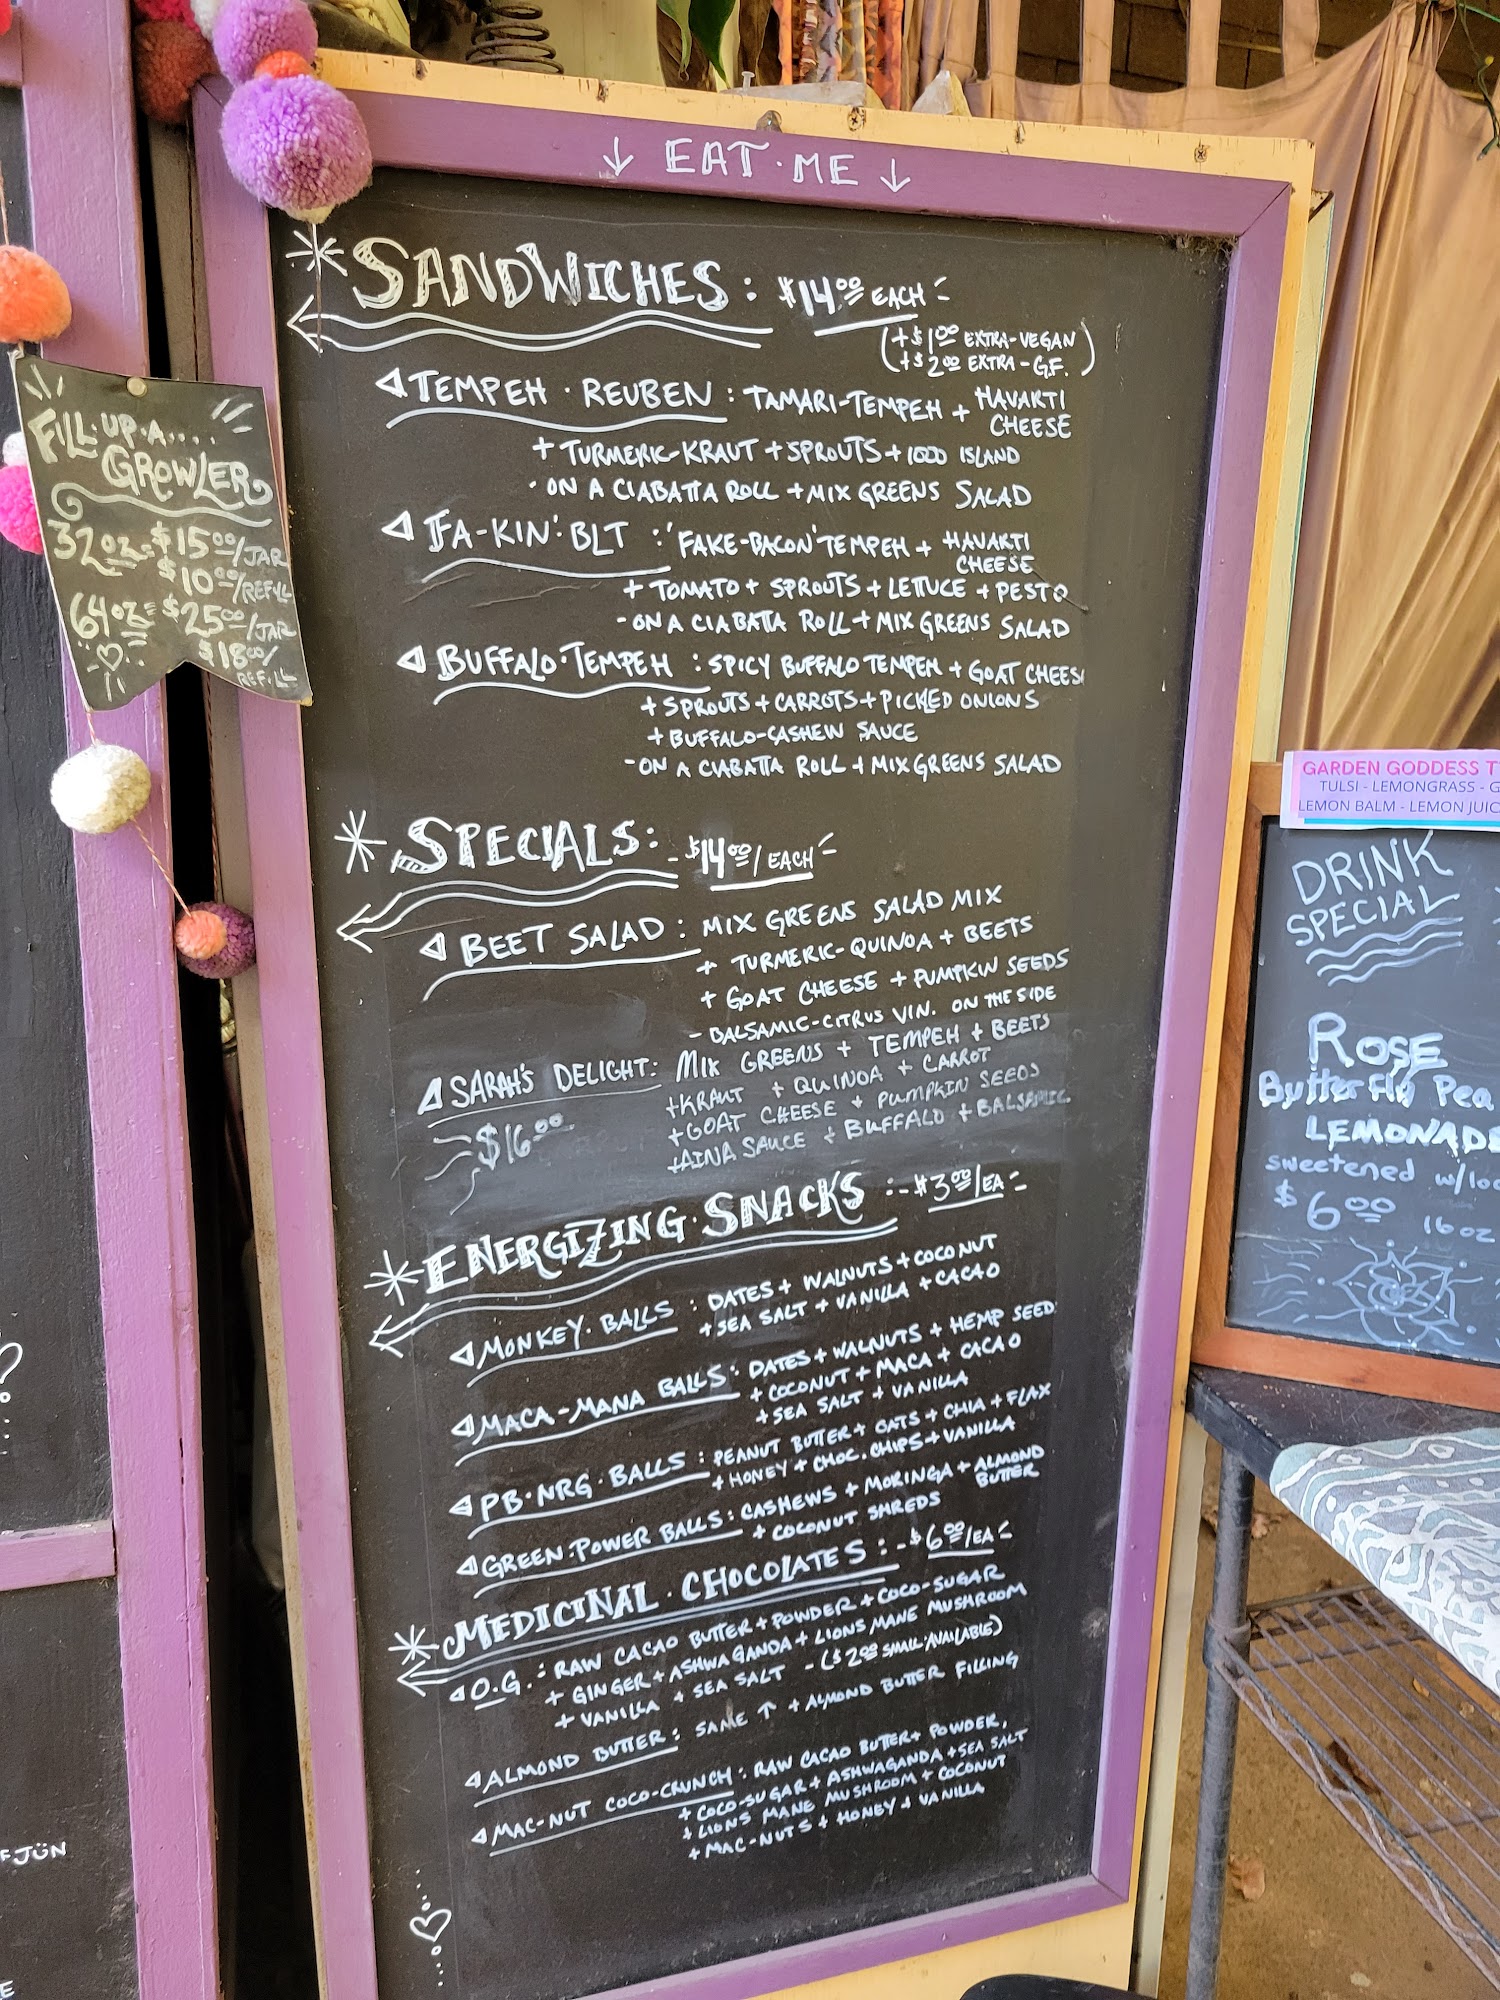 ↓ EAT·ME ↓
*SANDWICHES: $14.00 EACH
(+$1.00 EXTRA-VEGAN
+$2.00 EXTRA-G.F.)
TEMPEH·REUBEN: TAMARI-TEMPEH + HAVARTI CHEESE
+ TURMERIC-KRAUT + SPROUTS + 1000 ISLAND
-ON A CIABATTA ROLL + MIX GREENS SALAD
FA-KIN'·BLT: 'FAKE-BACON' TEMPEH + HAVARTI CHEESE
+ TOMATO + SPROUTS + LETTUCE + PESTO
-ON A CIABATTA ROLL + MIX GREENS SALAD
BUFFALO·TEMPEH: SPICY BUFFALO TEMPEH + GOAT CHEESE
+ SPROUTS + CARROTS + PICKLED ONIONS
+ BUFFALO-CASHEW SAUCE
-ON A CIABATTA ROLL + MIX GREENS SALAD
*SPECIALS: -$14.00/EACH
BEET SALAD: MIX GREENS SALAD MIX
+ TURMERIC-QUINOA + BEETS
+ GOAT CHEESE + PUMPKIN SEEDS
- BALSAMIC-CITRUS VIN. ON THE SIDE
SARAH'S DELIGHT: MIX GREENS + TEMPEH + BEETS
+KRAUT + QUINOA + CARROT
$16.00 +GOAT CHEESE + PUMPKIN SEEDS
+AINA SAUCE + BUFFALO + BALSAMIC
*ENERGIZING·SNACKS: -$3.00/EA-
MONKEY·BALLS: DATES + WALNUTS + COCONUT
+SEA SALT + VANILLA + CACAO
MACA-MANA BALLS: DATES + WALNUTS + HEMP SEED
+ COCONUT + MACA + CACAO
+ SEA SALT + VANILLA
PB·NRG·BALLS: PEANUT BUTTER + OATS + CHIA + FLAX
+ HONEY + CHOC. CHIPS + VANILLA
GREEN·POWER BALLS: CASHEWS + MORINGA + ALMOND BUTTER
+ COCONUT SHREDS
*MEDICINAL·CHOCOLATES: -$6.00/EA-
O.G.: RAW CACAO BUTTER + POWDER + COCO-SUGAR
+ GINGER + ASHWAGANDA + LIONS MANE MUSHROOM
+ VANILLA + SEA SALT - ($2.00 SMALL AVAILABLE)
ALMOND BUTTER: SAME ↑ + ALMOND BUTTER FILLING
MAC-NUT COCO-CRUNCH: RAW CACAO BUTTER + POWDER,
+ COCO-SUGAR + ASHWAGANDA + SEA SALT
+ LIONS MANE MUSHROOM + COCONUT
+ MAC-NUTS + HONEY + VANILLA
FILL·UP·A....
GROWLER
32oz = $15.00/JAR
$10.00/REFILL
64oz = $25.00/JAR
$18.00/
REFILL
JÜN
GARDEN GODDESS
TULSI - LEMONGRASS -
LEMON BALM - LEMON
DRINK
SPECIAL
ROSE
Butterfly Pea
LEMONADE
sweetened
$6.00 16oz